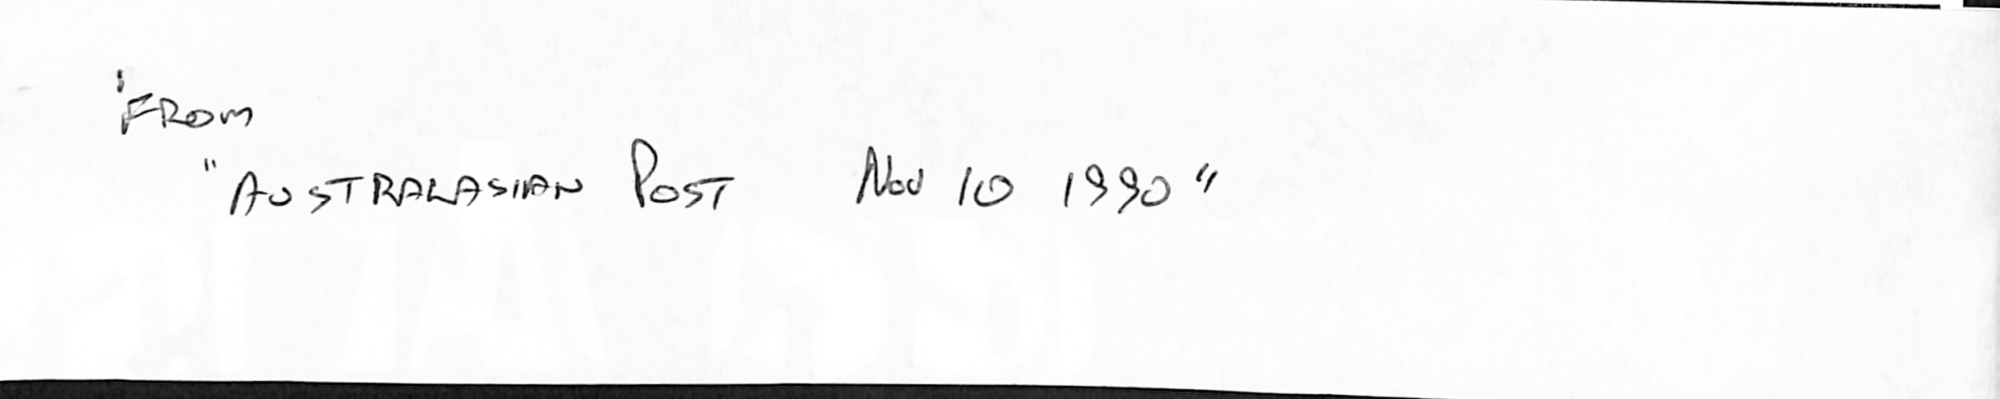 FROM
"AUSTRALASIAN POST Nov 10 1990"